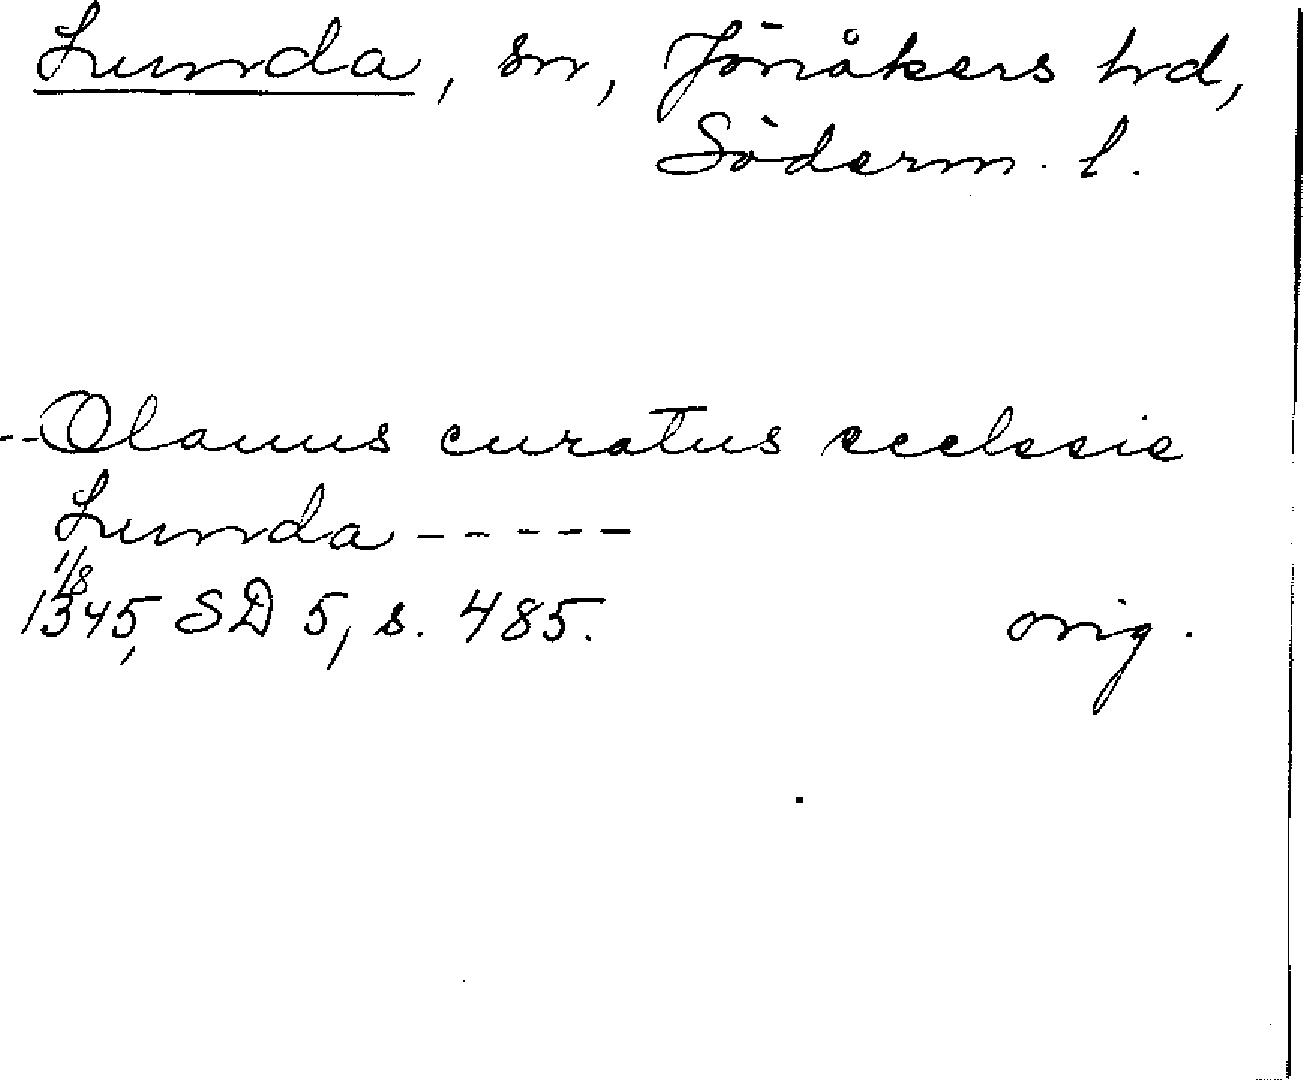 Lunda, sn, Jönåkers hd,
Söderm. l.
--Olauus curatus ecclesie
Lunda -----
1/8
1345, SD 5, s. 485. orig.